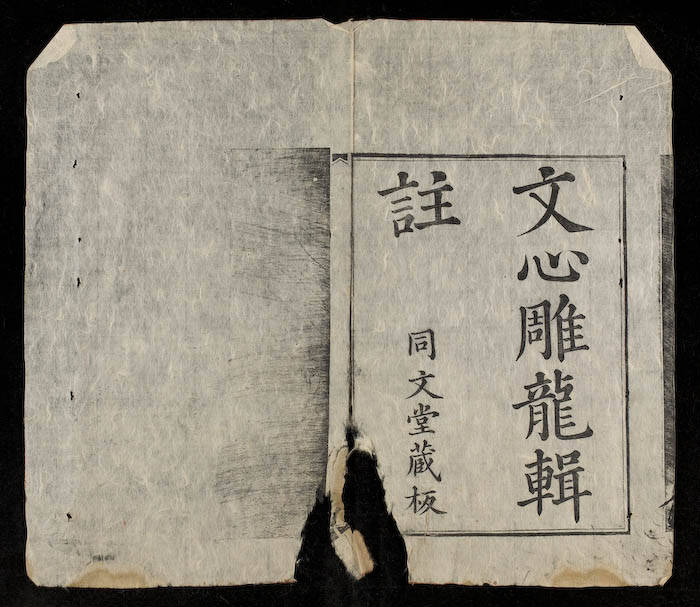 文心雕龍輯
註
同文堂藏板